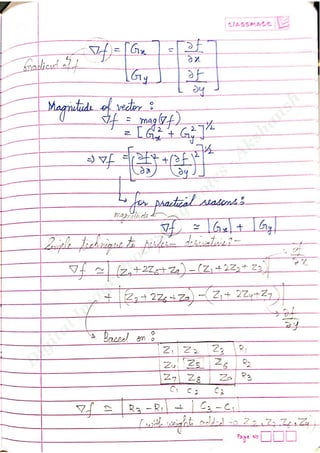 classmate
∇f) = [Gx Gy] = [∂f/∂x ∂f/∂y]
Gradient of f
Magnitude of vector :
∇f = mag(∇f)
= [Gx² + Gy²]^1/2
⇒ ∇f = [(∂f/∂x)² + (∂f/∂y)²]^1/2
for practical reasons :
magnitude
∇f ≃ |Gx| + |Gy|
Simple technique to perform derivative :-
∂f/∂x
∇f ≃ |(Z7+2Z8+Z9) - (Z1+2Z2+Z3)|
+ |(Z3+2Z6+Z9) - (Z1+2Z4+Z7)|
∂f/∂y
Based on :
Z1 Z2 Z3 R1
Z4 Z5 Z6 R2
Z7 Z8 Z9 R3
C1 C2 C3
∇f ≃ |R3 - R1| + |C3 - C1|
(with weight added to Z2, Z8, Z6, Z4)
Page No